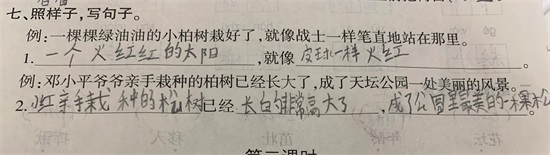 七、照样子，写句子。
例：一棵棵绿油油的小柏树栽好了，就像战士一样笔直地站在那里。
1.一个火红红的太阳，就像皮球一样火红。
例：邓小平爷爷亲手栽种的柏树已经长大了，成了天坛公园一处美丽的风景。
2.小红亲手栽种的松树已经长白的非常高大了，成了公园里最美的一棵松